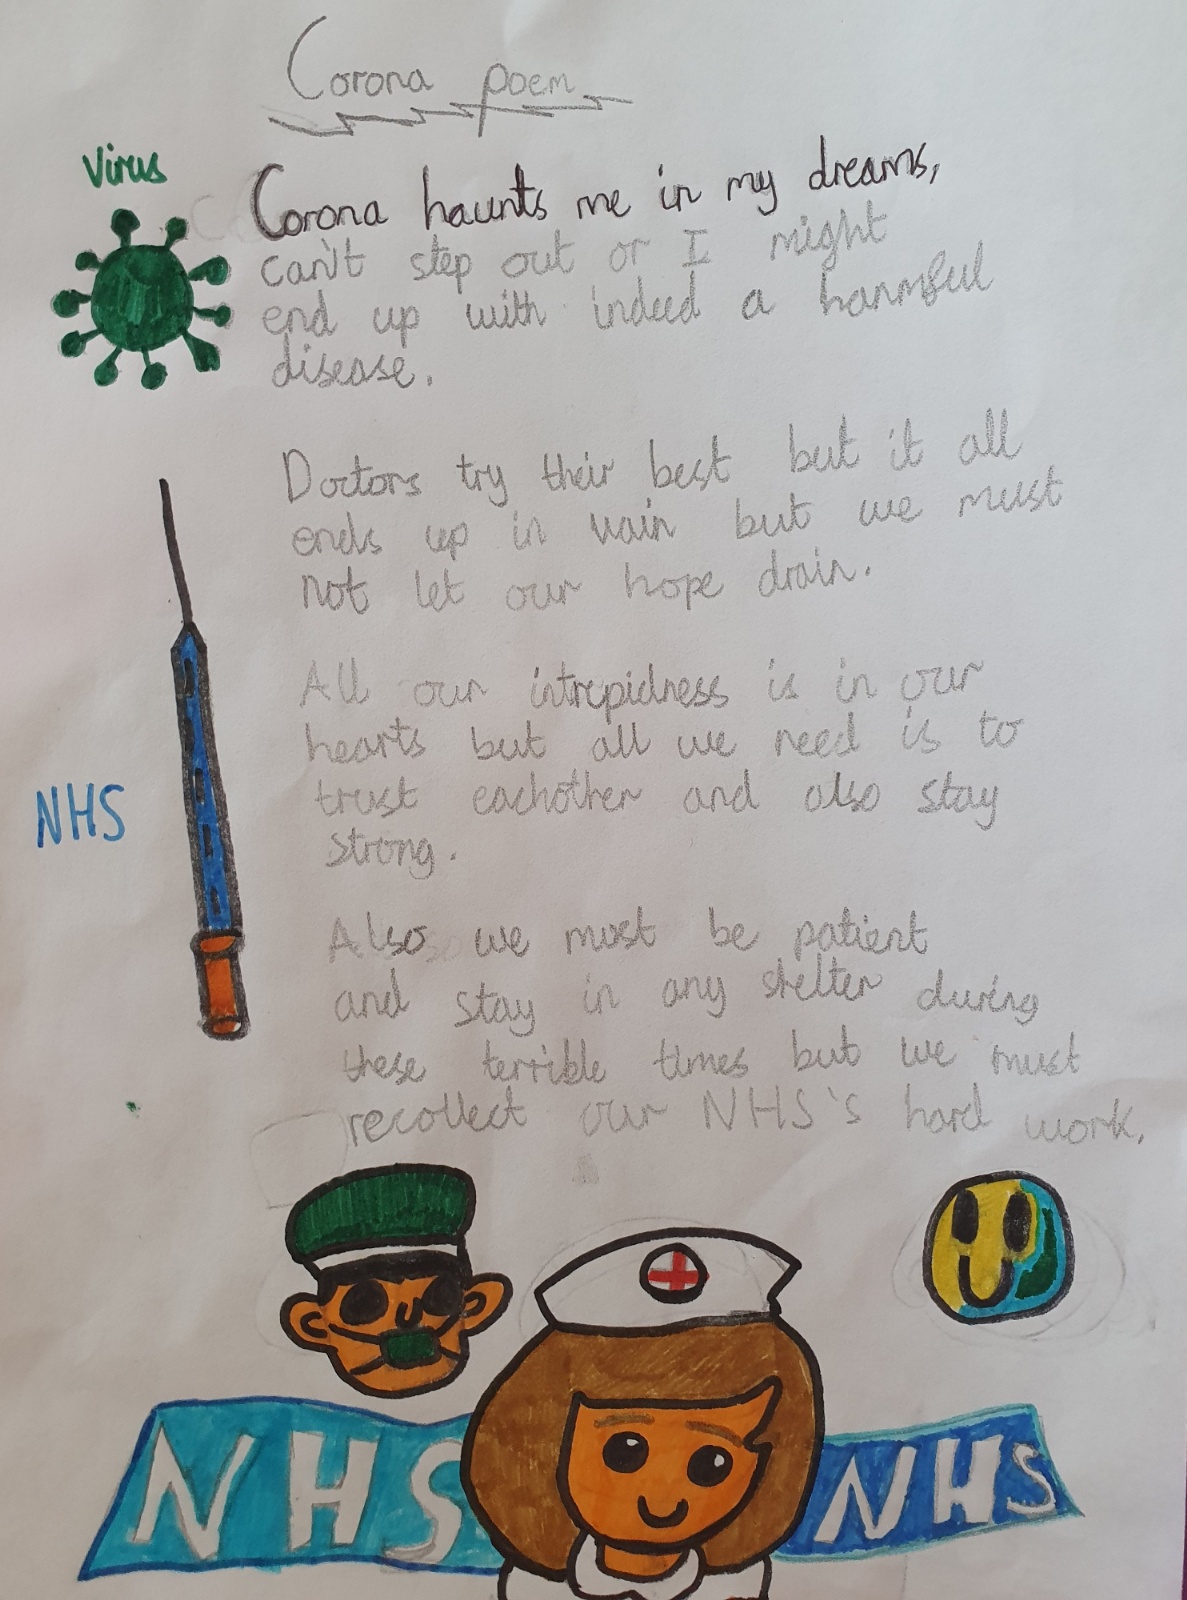 Corona poem
Virus
Corona haunts me in my dreams,
can't step out or I might
end up with indeed a harmful
disease.
Doctors try their best but it all
ends up in vain but we must
not let our hope drain.
All our intrepidness is in our
hearts but all we need is to
trust eachother and also stay
strong.
NHS
Also we must be patient
and stay in any shelter during
these terrible times but we must
recollect our NHS's hard work.
NHS
NHS